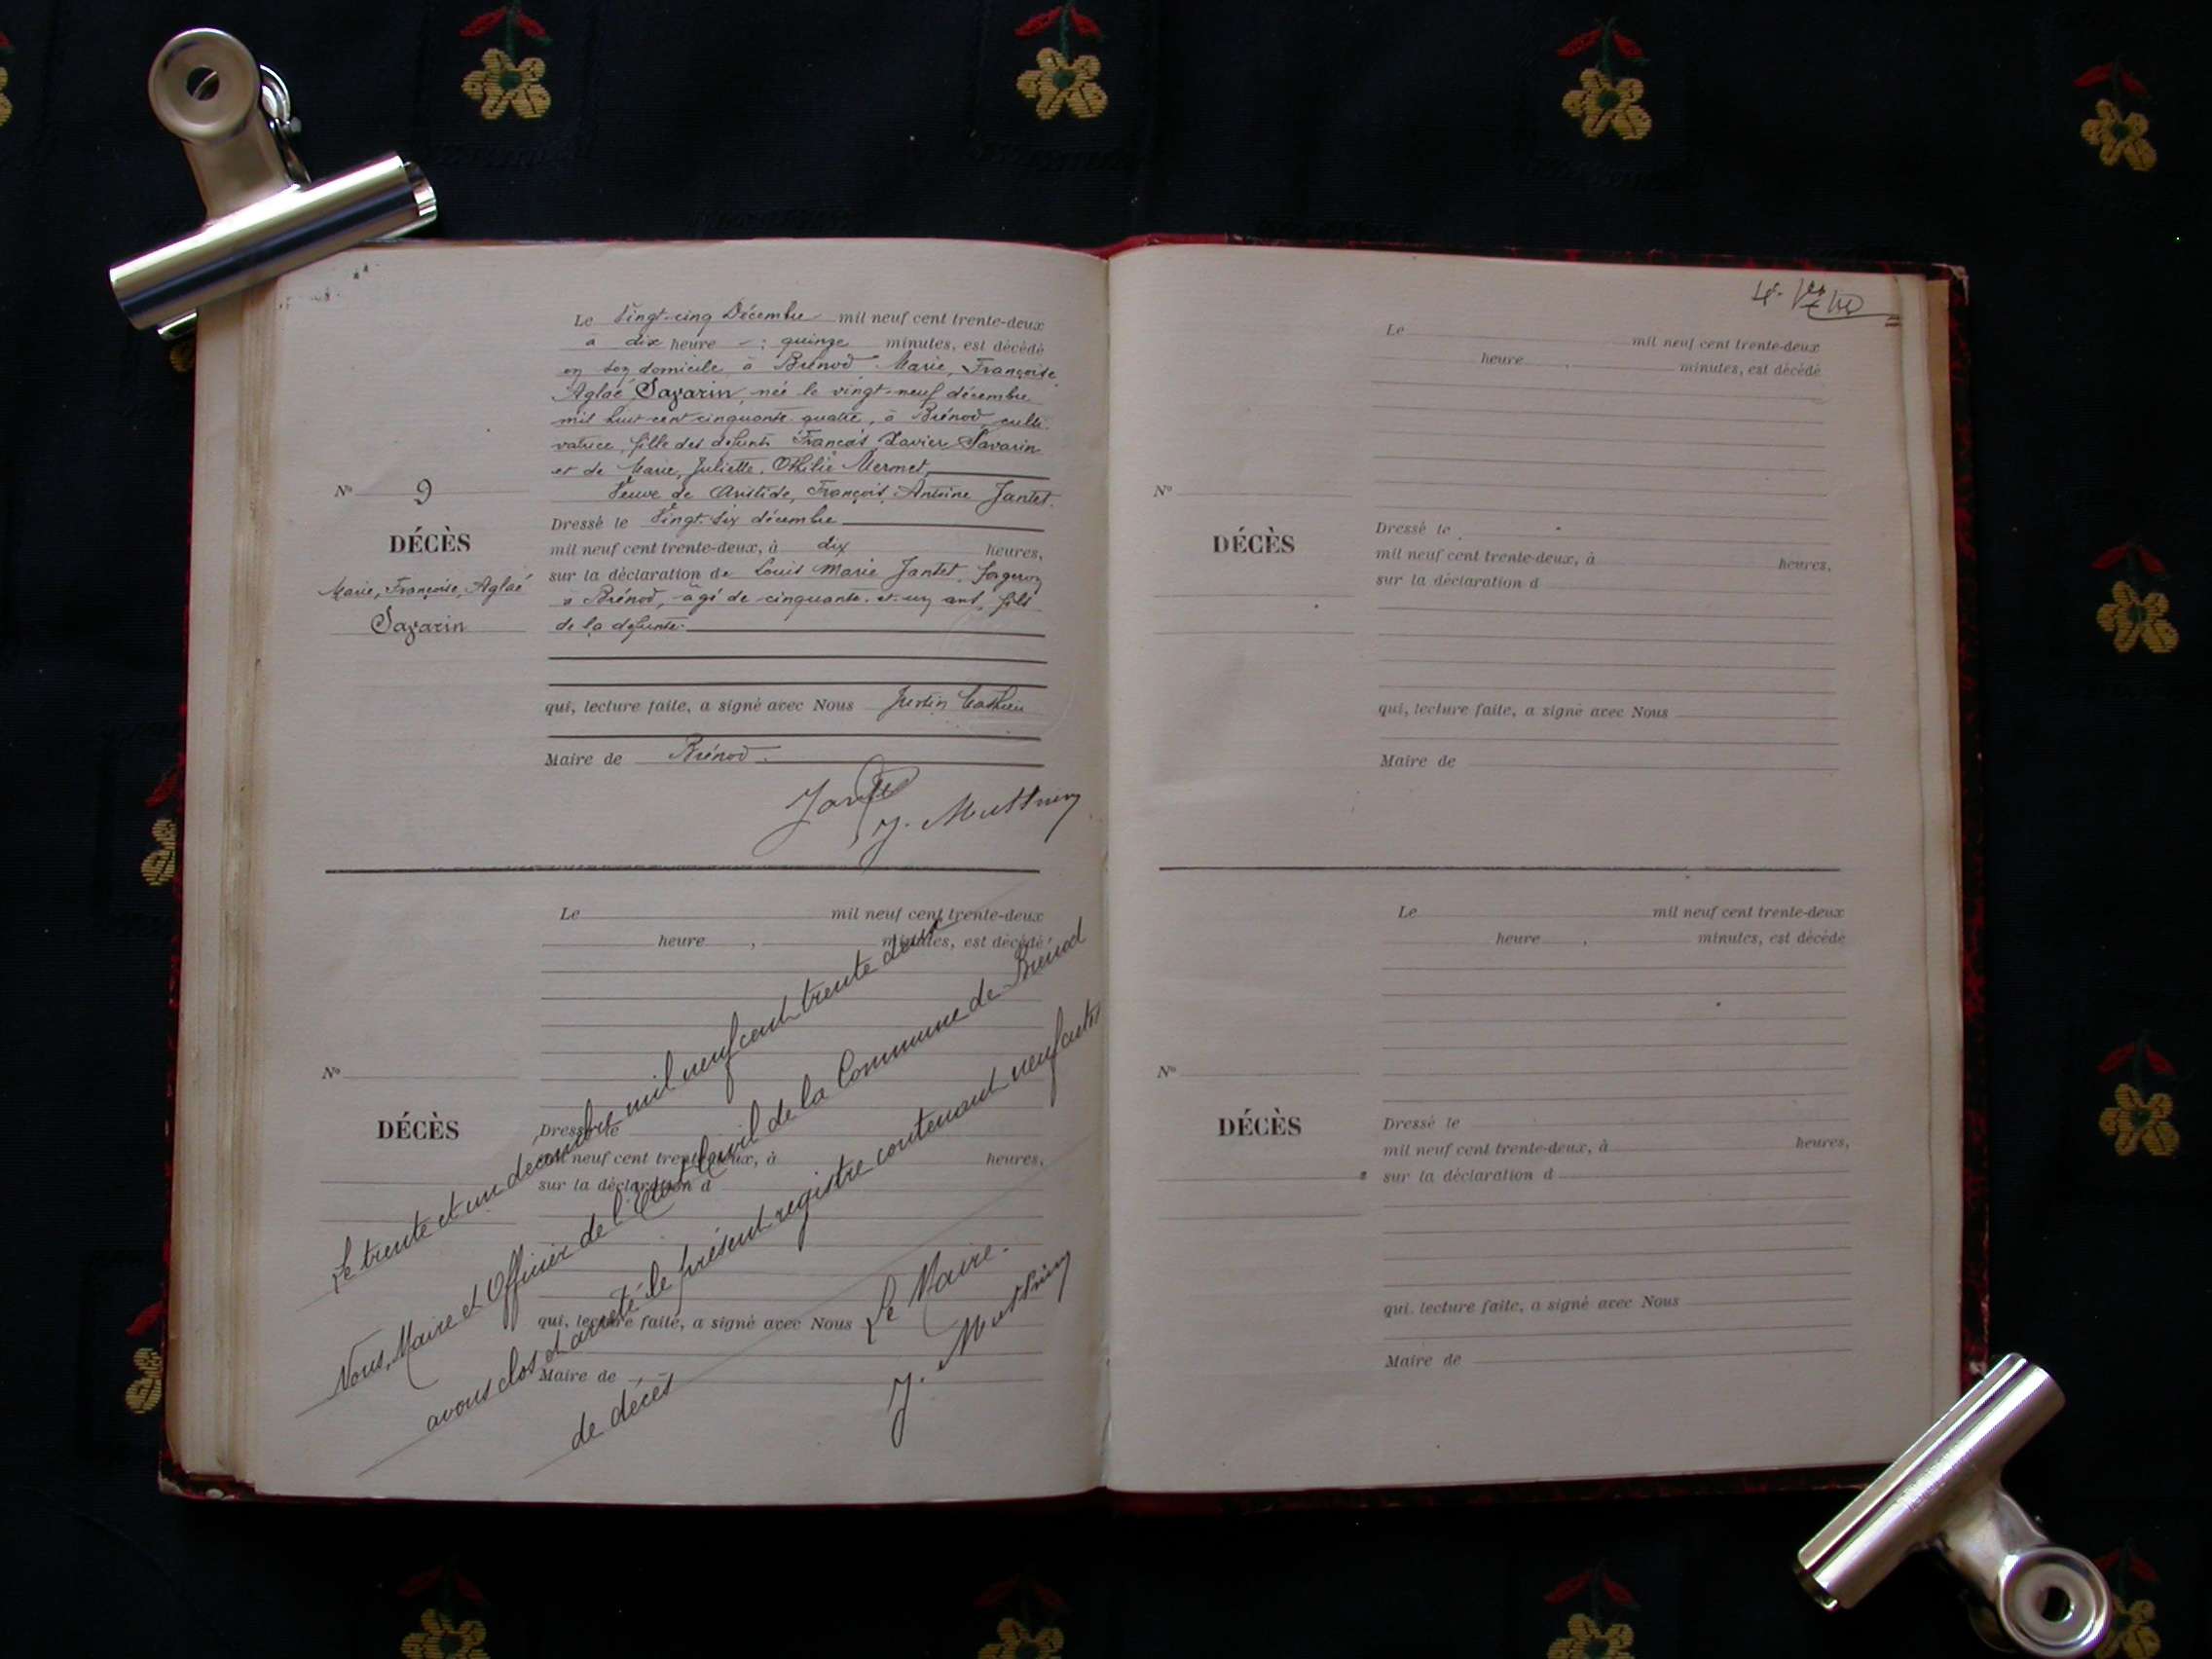 Le Vingt-cinq Décembre mil neuf cent trente-deux
à dix heure : quinze minutes, est décédé
en son domicile, à Brénod Marie, Françoise,
Aglaé, Savarin, née le vingt-neuf décembre
mil huit cent cinquante quatre, à Brénod, culti-
vatrice, fille des defunts François Xavier Savarin
et de Marie, Juliette, Othilie Mermet,
Veuve de Aristide, François, Antoine Jantet.
Dressé le Vingt-six décembre
mil neuf cent trente-deux, à dix heures,
sur la déclaration de Louis Marie Jantet, forgeron
à Brénod, âgé de cinquante-et-un ans, fils
de la defunte.
qui, lecture faite, a signé avec Nous Justin
Maire de Brénod.
Nº 9
DÉCÈS
Marie, Françoise, Aglaé
Savarin
Jantet
Le mil neuf cent trente-deux
heure , minutes, est décédé
Nº
DÉCÈS
Dressé le
mil neuf cent trente-deux, à heures,
sur la déclaration d
qui, lecture faite, a signé avec Nous
Maire de
Le trente et un decembre mil neuf cent trente deux
Nous, Maire et Officier de l'Etat Civil de la Commune de Brénod
avons clos et arreté le présent registre contenant neuf actes
de décès
Le Maire.
Le mil neuf cent trente-deux
heure , minutes, est décédé
Nº
DÉCÈS
Dressé le
mil neuf cent trente-deux, à heures,
sur la déclaration d
qui, lecture faite, a signé avec Nous
Maire de
Le mil neuf cent trente-deux
heure , minutes, est décédé
Nº
DÉCÈS
Dressé le
mil neuf cent trente-deux, à heures,
sur la déclaration d
qui, lecture faite, a signé avec Nous
Maire de